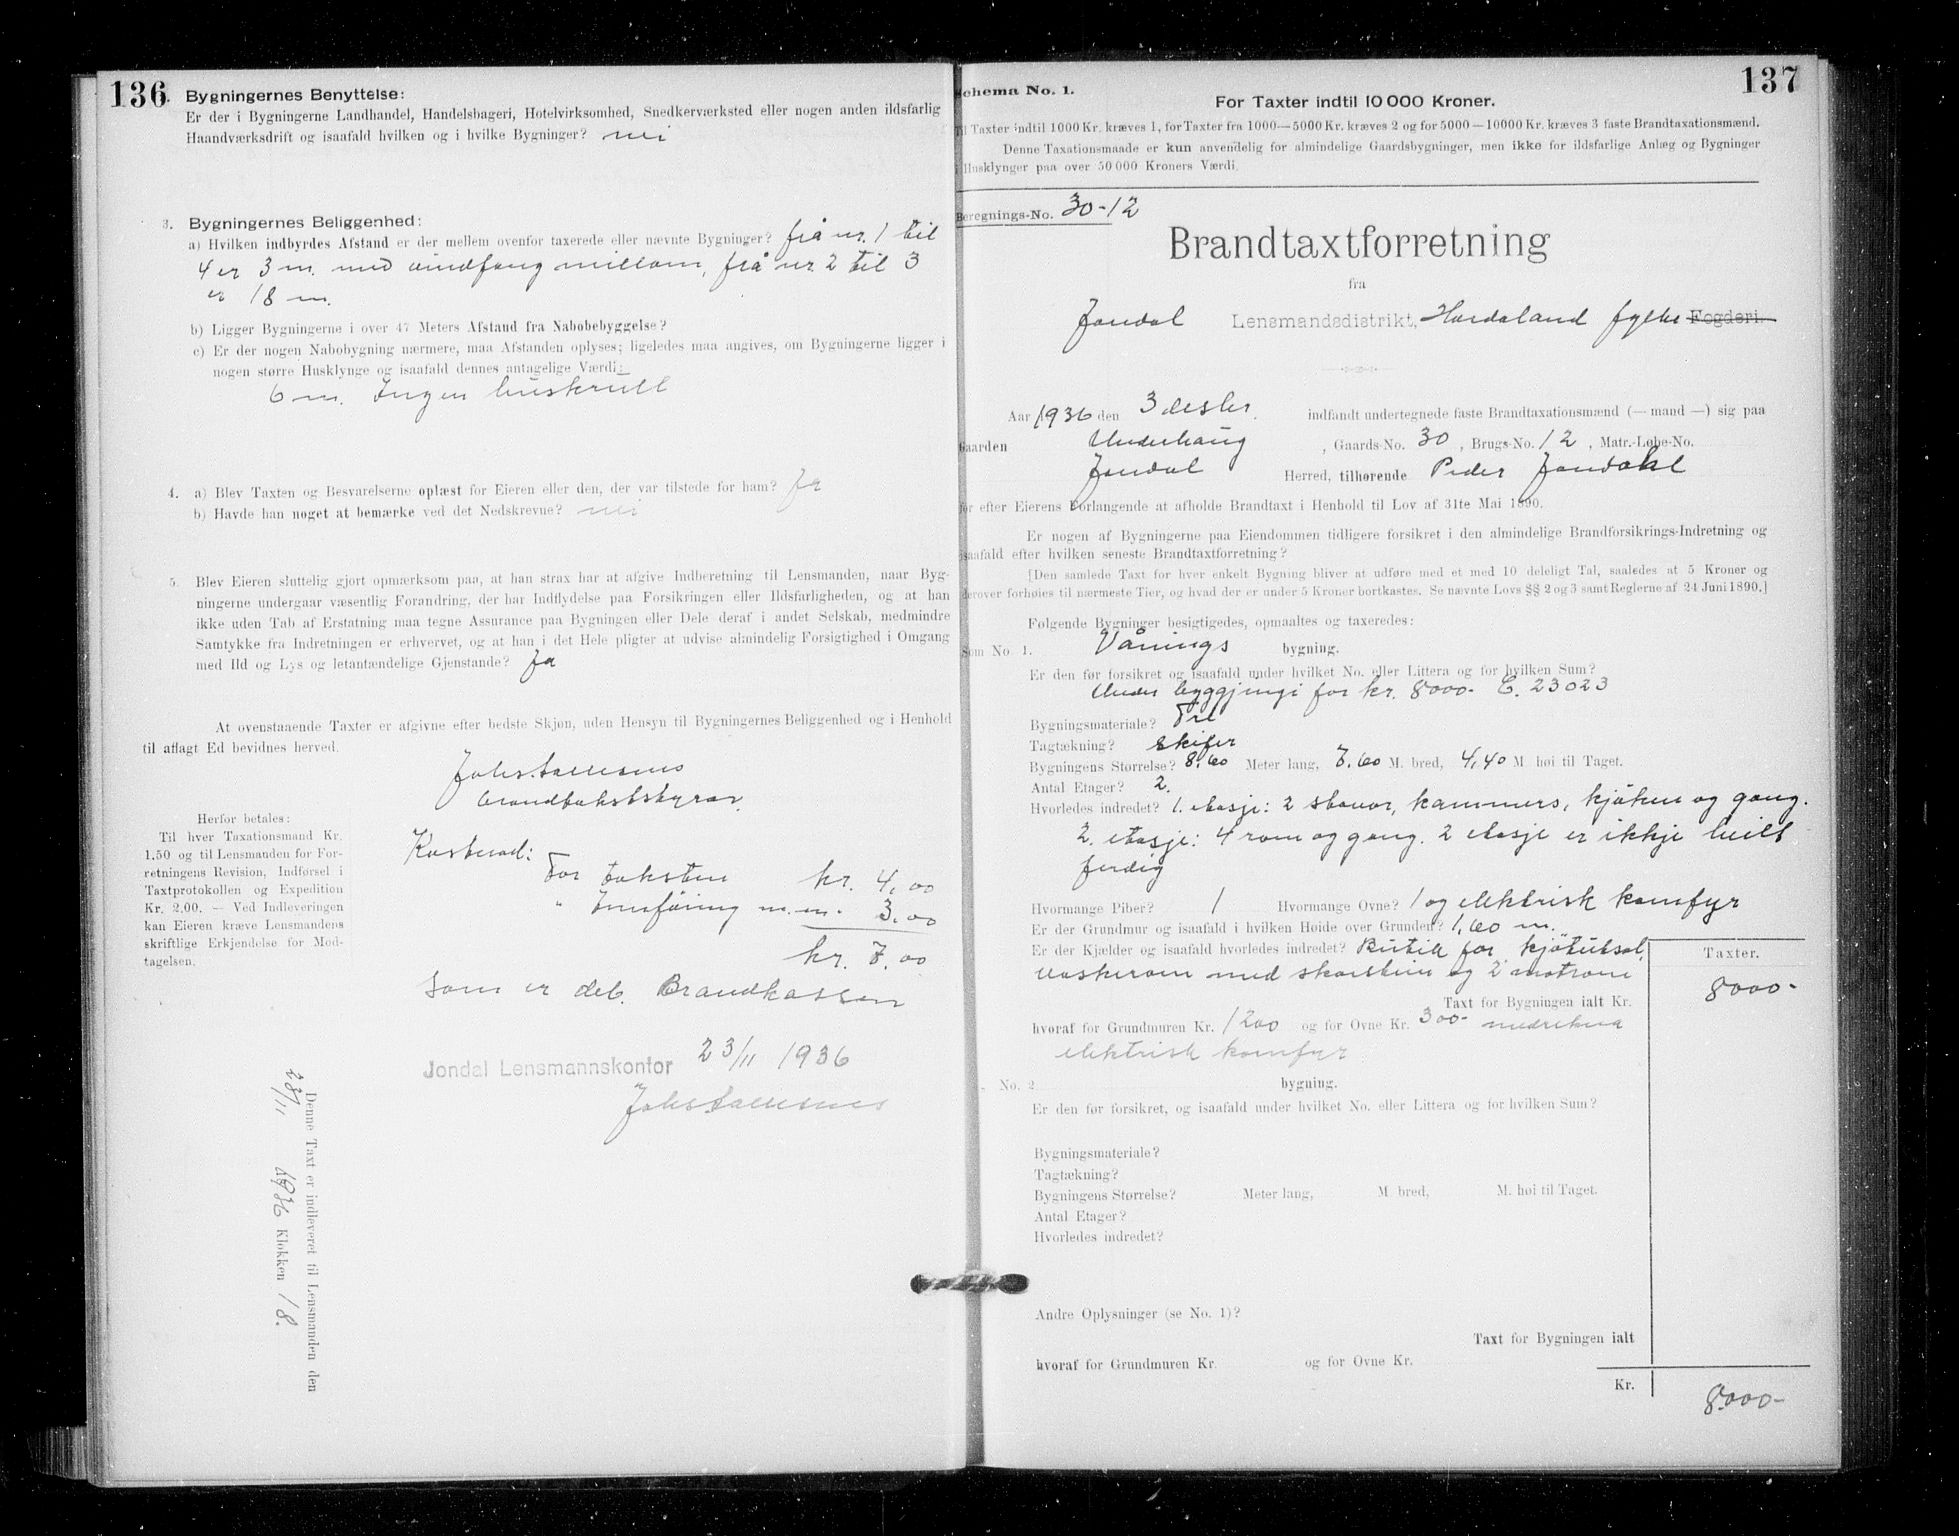 136
Bygningernes Benyttelse:
Er der i Bygningerne Landhandel, Handelsbageri, Hotelvirksomhed, Snedkerværksted eller nogen anden ildsfarlig
Haandværksdrift og isaafald hvilken og i hvilke Bygninger? nei
3. Bygningernes Beliggenhed:
a) Hvilken indbyrdes Afstand er der mellem ovenfor taxerede eller nævnte Bygninger? frå nr. 1 til
4 er 3 m. med vindfang millom, frå nr 2 til 3
er 18 m.
b) Ligger Bygningerne i over 47 Meters Afstand fra Nabobebyggelse?
c) Er der nogen Nabobygning nærmere, maa Afstanden oplyses; ligeledes maa angives, om Bygningerne ligger i
nogen større Husklynge og isaafald dennes antagelige Værdi:
6 m. Ingen huskrull
4. a) Blev Taxten og Besvarelserne oplæst for Eieren eller den, der var tilstede for ham? Ja
b) Havde han noget at bemærke ved det Nedskrevne? nei
5. Blev Eieren sluttelig gjort opmærksom paa, at han strax har at afgive Indberetning til Lensmanden, naar Byg-
ningerne undergaar væsentlig Forandring, der har Indflydelse paa Forsikringen eller Ildsfarligheden, og at han
ikke uden Tab af Erstatning maa tegne Assurance paa Bygningen eller Dele deraf i andet Selskab, medmindre
Samtykke fra Indretningen er erhvervet, og at han i det Hele pligter at udvise almindelig Forsigtighed i Omgang
med Ild og Lys og letantændelige Gjenstande? Ja
At ovenstaaende Taxter er afgivne efter bedste Skjøn, uden Hensyn til Bygningernes Beliggenhed og i Henhold
til aflagt Ed bevidnes herved.
brandtakststyrar.
Herfor betales:
Til hver Taxationsmand Kr.
1.50 og til Lensmanden for For-
retningens Revision, Indførsel i
Taxtprotokollen og Expedition
Kr. 2.00. — Ved Indleveringen
kan Eieren kræve Lensmandens
skriftlige Erkjendelse for Mod-
tagelsen.
Kostnad:
For taksten kr. 4,00
" Innføring m.m. 3.00
kr. 7,00
som er deb. Brandkassen
Jondal Lensmannskontor 23/11 1936
Denne Taxt er indleveret til Lensmanden den
23/11 1936 Klokken 18.
137
Schema No. 1.
For Taxter indtil 10 000 Kroner.
Til Taxter indtil 1000 Kr. kræves 1, for Taxter fra 1000—5000 Kr. kræves 2 og for 5000—10000 Kr. kræves 3 faste Brandtaxationsmænd.
Denne Taxationsmaade er kun anvendelig for almindelige Gaardsbygninger, men ikke for ildsfarlige Anlæg og Bygninger
i Husklynger paa over 50 000 Kroners Værdi.
Beregnings-No. 30-12
Brandtaxtforretning
fra
Jondal Lensmandsdistrikt, Hordaland fylke Fogderi.
Aar 1936 den 3 desbr. indfandt undertegnede faste Brandtaxationsmænd (— mand —) sig paa
Gaarden Underhaug, Gaards-No. 30, Brugs-No. 12, Matr.-Løbe-No.
Jondal Herred, tilhørende Peder Jondahl
for efter Eierens Forlangende at afholde Brandtaxt i Henhold til Lov af 31te Mai 1890.
Er nogen af Bygningerne paa Eiendommen tidligere forsikret i den almindelige Brandforsikrings-Indretning og
isaafald efter hvilken seneste Brandtaxtforretning?
[Den samlede Taxt for hver enkelt Bygning bliver at udføre med et med 10 deleligt Tal, saaledes at 5 Kroner og
derover forhøies til nærmeste Tier, og hvad der er under 5 Kroner bortkastes. Se nævnte Lovs §§ 2 og 3 samt Reglerne af 24 Juni 1890.]
Følgende Bygninger besigtigedes, opmaaltes og taxeredes:
Som No 1. Vånings bygning.
Er den før forsikret og isaafald under hvilket No. eller Littera og for hvilken Sum?
Under byggjingi for kr. 8000- C. 23023
Bygningsmateriale? Tre
Tagtækning? skifer
Bygningens Størrelse? 8,60 Meter lang, 7,60 M. bred, 4,40 M høi til Taget.
Antal Etager? 2.
Hvorledes indredet? 1. etasje: 2 stovor, kammers, kjøken og gang.
2. etasje: 4 rom og gang. 2 etasje er ikkje heilt
ferdig
Hvormange Piber? 1 Hvormange Ovne? 1 og elektrisk komfyr
Er der Grundmur og isaafald i hvilken Høide over Grunden? 1,60 m.
Er der Kjælder og isaafald hvorledes indredet? Butik for kjøtutsal,
vaskerom med skorstein og 2 matrom
Taxter.
Taxt for Bygningen ialt Kr. 8000-
hvoraf for Grundmuren Kr. 1200 og for Ovne Kr. 300- medrekna
elektrisk komfyr
No. 2 bygning.
Er den før forsikret, og isaafald under hvilket No. eller Littera og for hvilken Sum?
Bygningsmateriale?
Tagtækning?
Bygningens Størrelse? Meter lang, M bred, M. høi til Taget.
Antal Etager?
Hvorledes indredet?
Andre Oplysninger (se No. 1)?
Taxt for Bygningen ialt
hvoraf for Grundmuren Kr. og for Ovne Kr.
Kr. 8000-